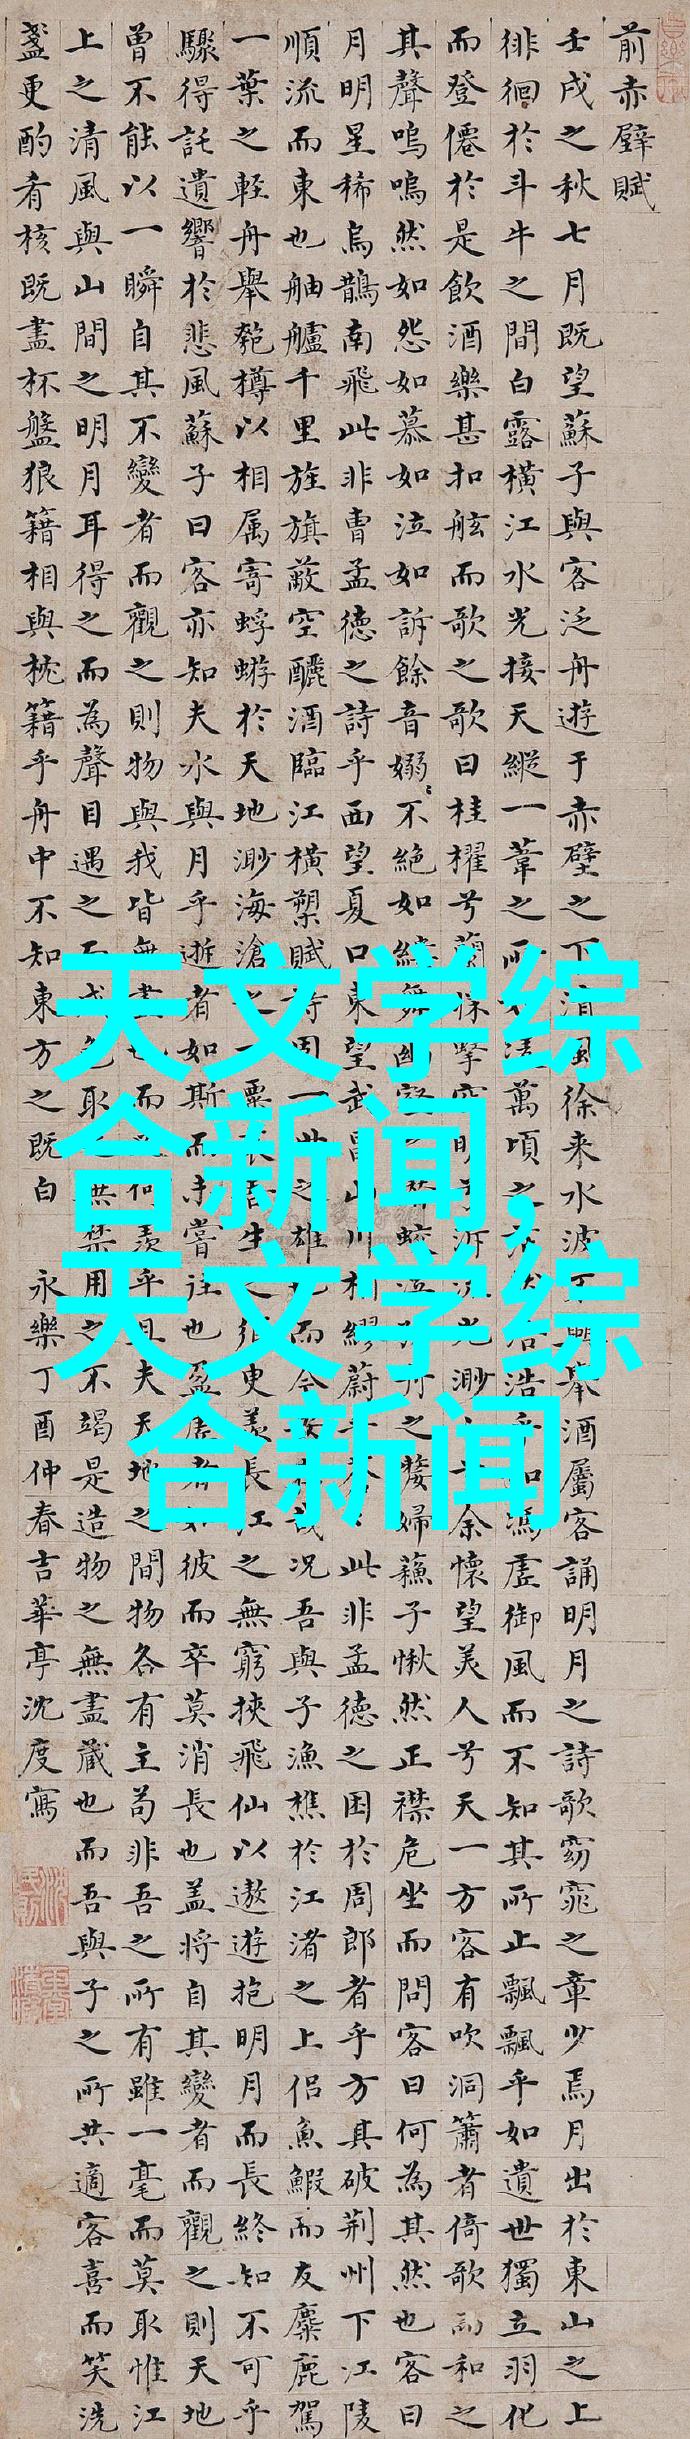 前赤壁賦
壬戌之秋七月既望蘇子與客泛舟遊于赤壁之下清風徐来水波不興舉酒屬客誦明月之詩歌窈窕之章少焉月出於東山之上
徘徊於斗牛之間白露橫江水光接天縱一葦之所凌萬頃之浩乎如馮虛御風而不知其所止飄飄乎如遺世獨立羽化
而登僊於是飲酒樂甚扣舷而歌之歌曰桂櫂兮蘭槳擊空明兮泝流光渺余懷望美人兮天一方客有吹洞簫者倚歌而和之
其聲嗚嗚然如怨如慕如泣如訴餘音嫋〻不絕如縷舞幽壑之潛蛟泣孤舟之嫠婦蘇子愀然正襟危坐而問客曰何為其然也客曰
月明星稀烏鵲南飛此非曹孟德之詩乎西望夏口東望武昌山川相繆蔚乎蒼〻此非孟德之困於周郎者乎方其破荊州下江陵
順流而東也舳艫千里旌旗蔽空釃酒臨江橫槊賦詩固一世之雄也而今安在哉況吾與子漁樵於江渚之上侶魚鰕而友麋鹿駕
一葉之輕舟舉匏樽以相属寄蜉蝣於天地渺海滄之一粟哀吾生之須臾羨長江之無窮挾飛仙以遨遊抱明月而長終知不可乎
驟得託遺響於悲風蘇子曰客亦知夫水與月乎逝者如斯而未嘗往也盈虛者如彼而卒莫消長也盖將自其變者而觀之則天地
曾不能以一瞬自其不變者而觀之則物與我皆無盡也而又何羨乎且夫天地之間物各有主苟非吾之所有雖一毫而莫取惟江
上之清風與山間之明月耳得之而為聲目遇之而成色取之無禁用之不竭是造物之無盡藏也而吾與子之所共適客喜而笑洗
盞更酌肴核既盡杯盤狼籍相與枕籍乎舟中不知東方之既白 永樂丁酉仲春吉華亭沈度寫
天文学综
合新闻,
天文学综
合新闻